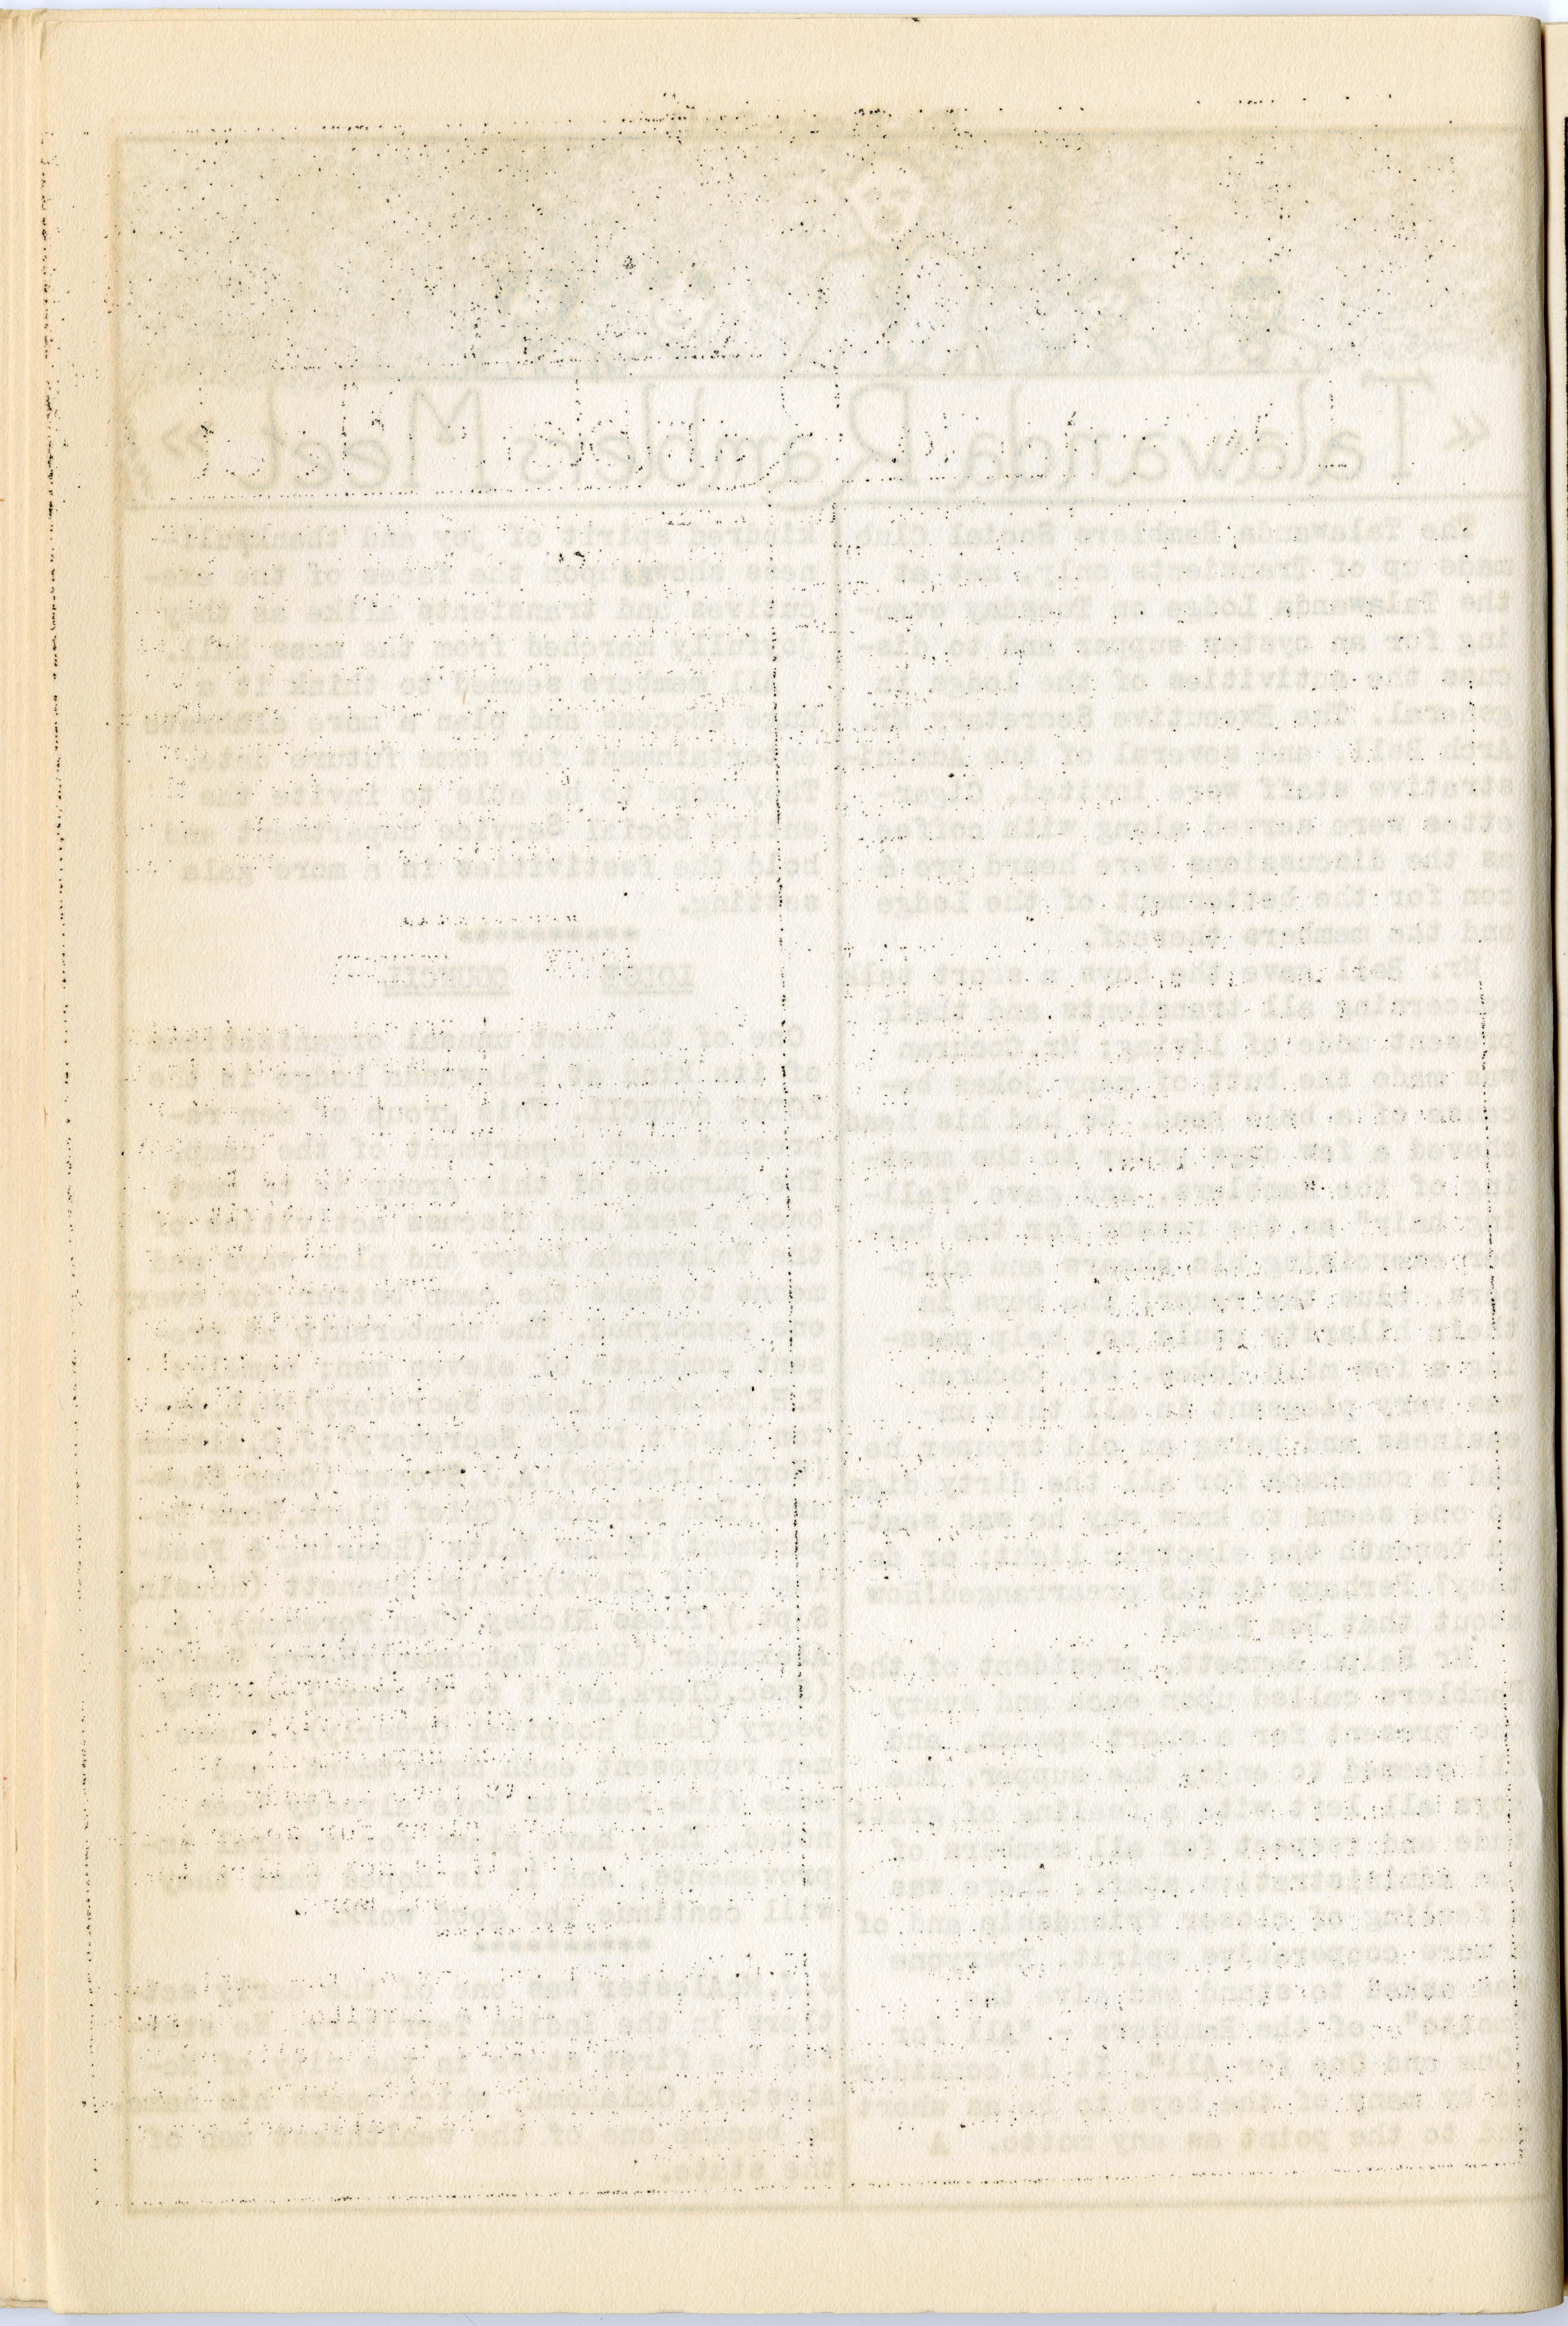 « Talawanda Ramblers Meet »
The Talawanda Ramblers Social Club
made up of Transients only, met at
the Talawanda Lodge on Tuesday even-
ing for an oyster supper and to dis-
cuss the activities of the lodge in
general. The Executive Secretary Mr.
Arch Bell, and several of the Admini-
strative staff were invited. Cigar-
ettes were served along with coffee
as the discussions were heard pro &
con for the betterment of the lodge
and the members thereof.
Mr. Bell gave the boys a short talk
concerning all transients and their
present mode of living; Mr. Cochran
was made the butt of many jokes be-
cause of a bare head. He had his head
shaved a few days prior to the meet-
ing of the Ramblers, and gave "fall
ing hair" as the reason for the bar-
ber exercising his shears and clip-
pers, plus the razor! The boys in
their hilarity could not help pass-
ing a few mild jokes. Mr. Cochran
was very pleasant in all this un-
easiness and being an old trouper he
had a comeback for all the dirty digs
No one seems to know why he was seat-
ed beneath the electric light; or do
they? Perhaps it WAS prearranged! How
about that
Mr Ralph Bennett, president of the
Ramblers called upon each and every
one present for a short speech, and
all seemed to enjoy the supper. The
boys all left with a feeling of grati
tude and respect for all members of
the Administrative staff. There was
a feeling of closer friendship and of
a more cooperative spirit. Everyone
was asked to stand and give the
"motto" of the Ramblers - "All for
One and One for All". It is consider-
ed by many of the boys to be as short
and to the point as any motto. A
kindred spirit of joy and thankfull-
ness shows upon the faces of the exe-
cutives and transients alike as they
joyfully marched from the mess hall.
All members seemed to think it a
huge success and plan a more elaborate
entertainment for some future date.
They hope to be able to invite the
entire Social Service department and
hold the festivities in a more gala
setting.
***********
LODGE COUNCIL
One of the most unusual organizations
of its kind at Talawanda Lodge is the
LODGE COUNCIL. This group of men re-
present each department of the camp.
The purpose of this group is to meet
once a week and discuss activities of
the Talawanda Lodge and plan ways and
means to make the camp better for every
one concerned. The membership at pre-
sent consists of eleven men; namely:
E.H.Cochran (Lodge Secretary)
ton (Ass't Lodge Secretary);J.C.
(Work Director);A.J. (Camp Stew-
ard);Don (Chief Clerk,Work De-
partment);Elmer White (Housing & Feed-
ing Chief Clerk);Ralph Bennett (Housing
Supt.); Richey (Gen.Foreman); A.
Alexander (Head Watchman);Harry
(Spec.Clerk,Ass't to Steward) and Ray
(Head Hospital Orderly). These
men represent each department, and
some fine results have already been
noted. They have plans for several im-
provements, and it is hoped that they
will continue the good work.
***********
J.J.McAlester was one of the early set-
tlers in the Indian Territory. He start-
ed the first store in the city of Mc-
Alester, Oklahoma, which bears his name.
He became one of the wealthiest men of
the state.